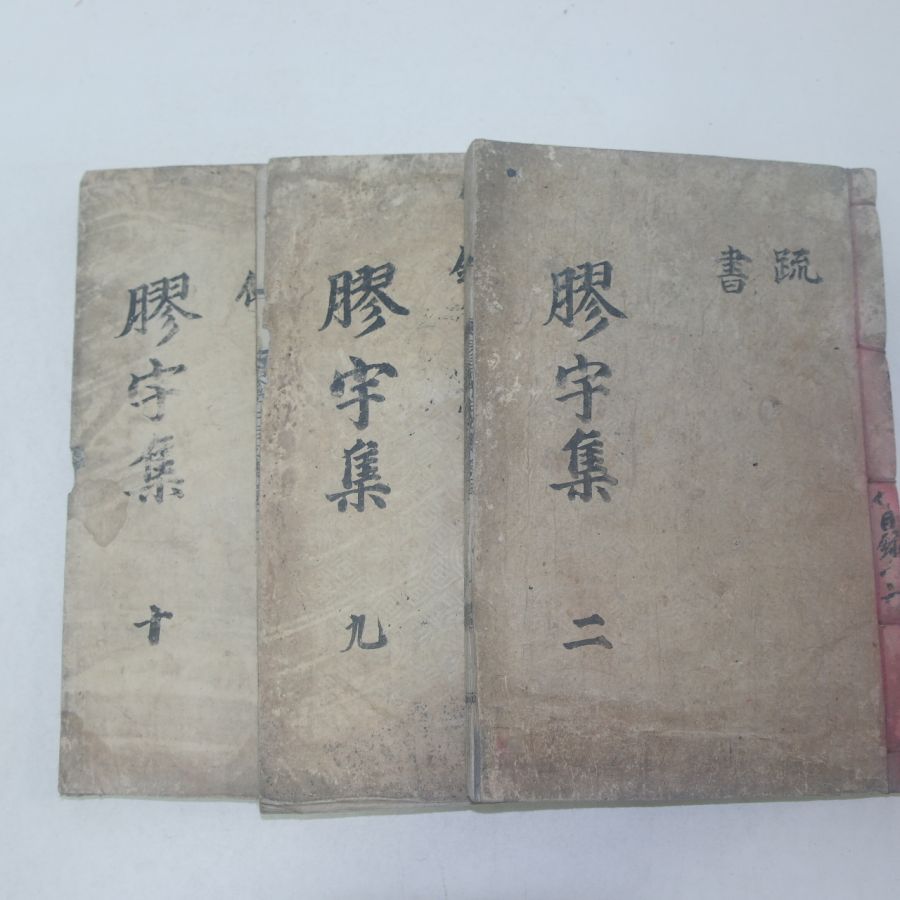 疏
書
膠宇集 二
膠宇集 九
膠宇集 十
目錄